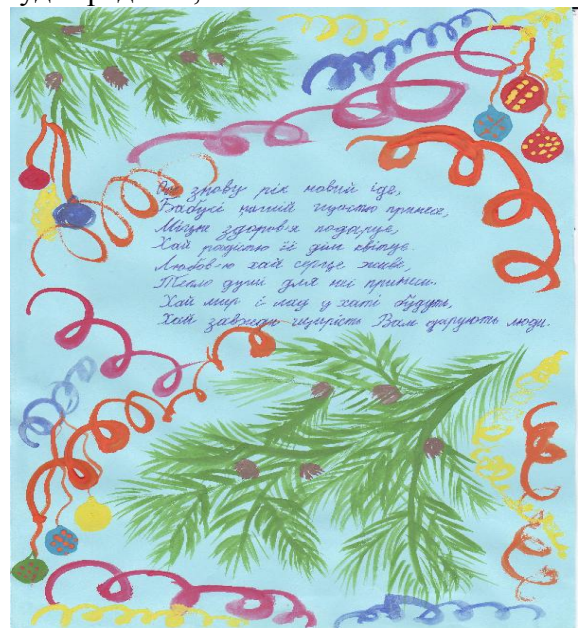 знову рік новий іде,
Бабусі нашій щастя принесе,
Міцне здоров-я подарує,
Хай радістю її дім квітує.
Любов-ю хай серце живе,
Тепло душі для неї принесе.
Хай мир і лад у хаті будуть,
Хай завжди щирість Вам дарують люди.